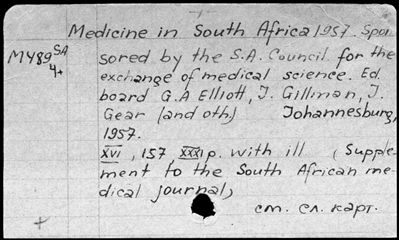 Medicine in South Africa 1957. Spon
M489 SA
4+
sored by the S.A. Council for the
exchange of medical science. Ed.
board G.A Elliott, J. Gillman, J.
Gear (and oth) Johannesburg,
1957.
XVI, 157, XXXI p. with ill (Supple-
ment to the South African me-
dical journal)
см. сл. карт.
+